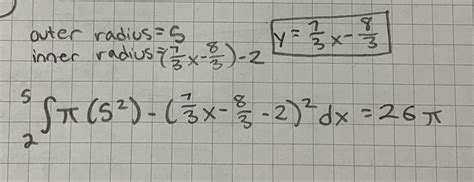 outer radius = 5
inner radius = (7/3 x - 8/3) - 2
y = 7/3 x - 8/3
5
∫ π (5²) - (7/3 x - 8/3 - 2)² dx = 26π
2